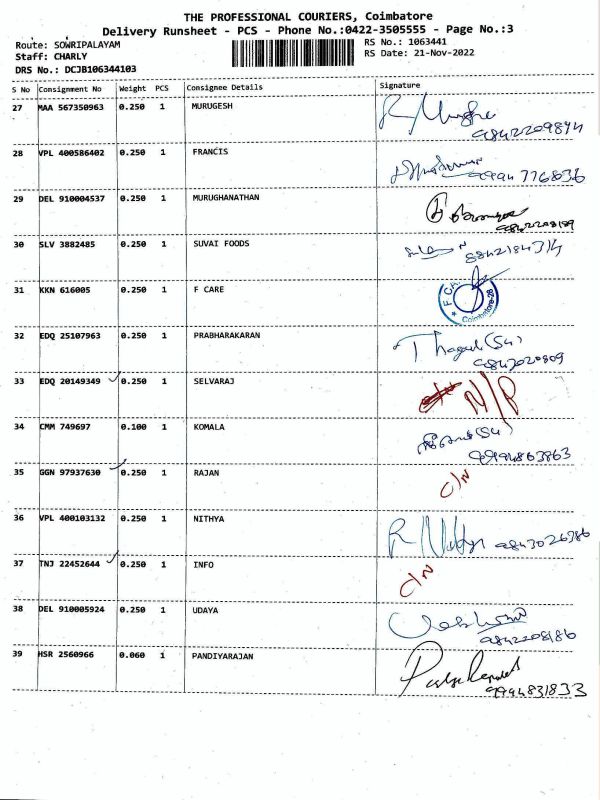 THE PROFESSIONAL COURIERS, Coimbatore
Delivery Runsheet - PCS - Phone No.:0422-3505555 - Page No.:3
Route: SOWRIPALAYAM
Staff: CHARLY
DRS No.: DCJB106344103
RS No.: 1063441
RS Date: 21-Nov-2022
S No Consignment No Weight PCS Consignee Details Signature
27 MAA 567350963 0.250 1 MURUGESH
28 VPL 400586402 0.250 1 FRANCIS
29 DEL 910004537 0.250 1 MURUGHANATHAN
30 SLV 3882485 0.250 1 SUVAI FOODS
8842184314
31 KKN 616005 0.250 1 F CARE
Coimbatore-28
32 EDQ 25107963 0.250 1 PRABHARAKARAN
33 EDQ 20149349 0.250 1 SELVARAJ N/P
34 CMM 749697 0.100 1 KOMALA
9994863863
35 GGN 97937630 0.250 1 RAJAN C/N
36 VPL 400103132 0.250 1 NITHYA
9843026386
37 TNJ 22452644 0.250 1 INFO C/N
38 DEL 910005924 0.250 1 UDAYA
9842208186
39 HSR 2560966 0.060 1 PANDIYARAJAN
9994831833